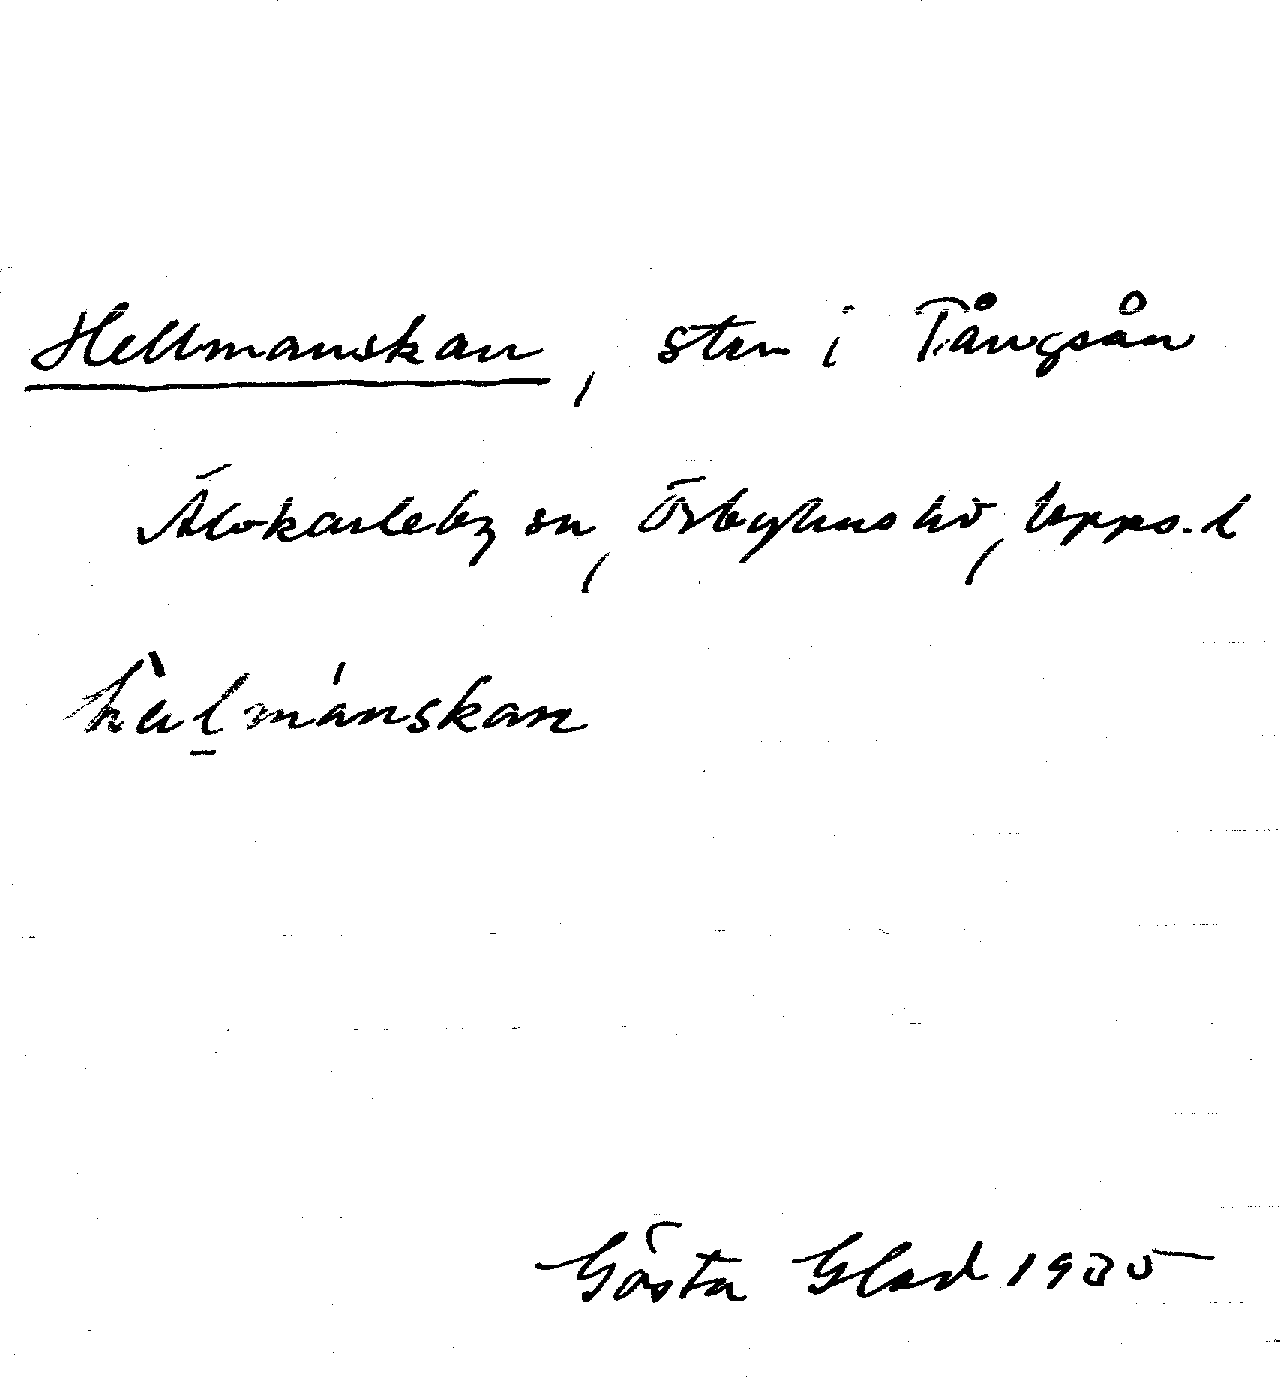 Hellmanskan, sten i Tångsån
Älvkarleby sn, Örbyhus hd, Upps. l
hälmánskan
Gösta Glad 1935